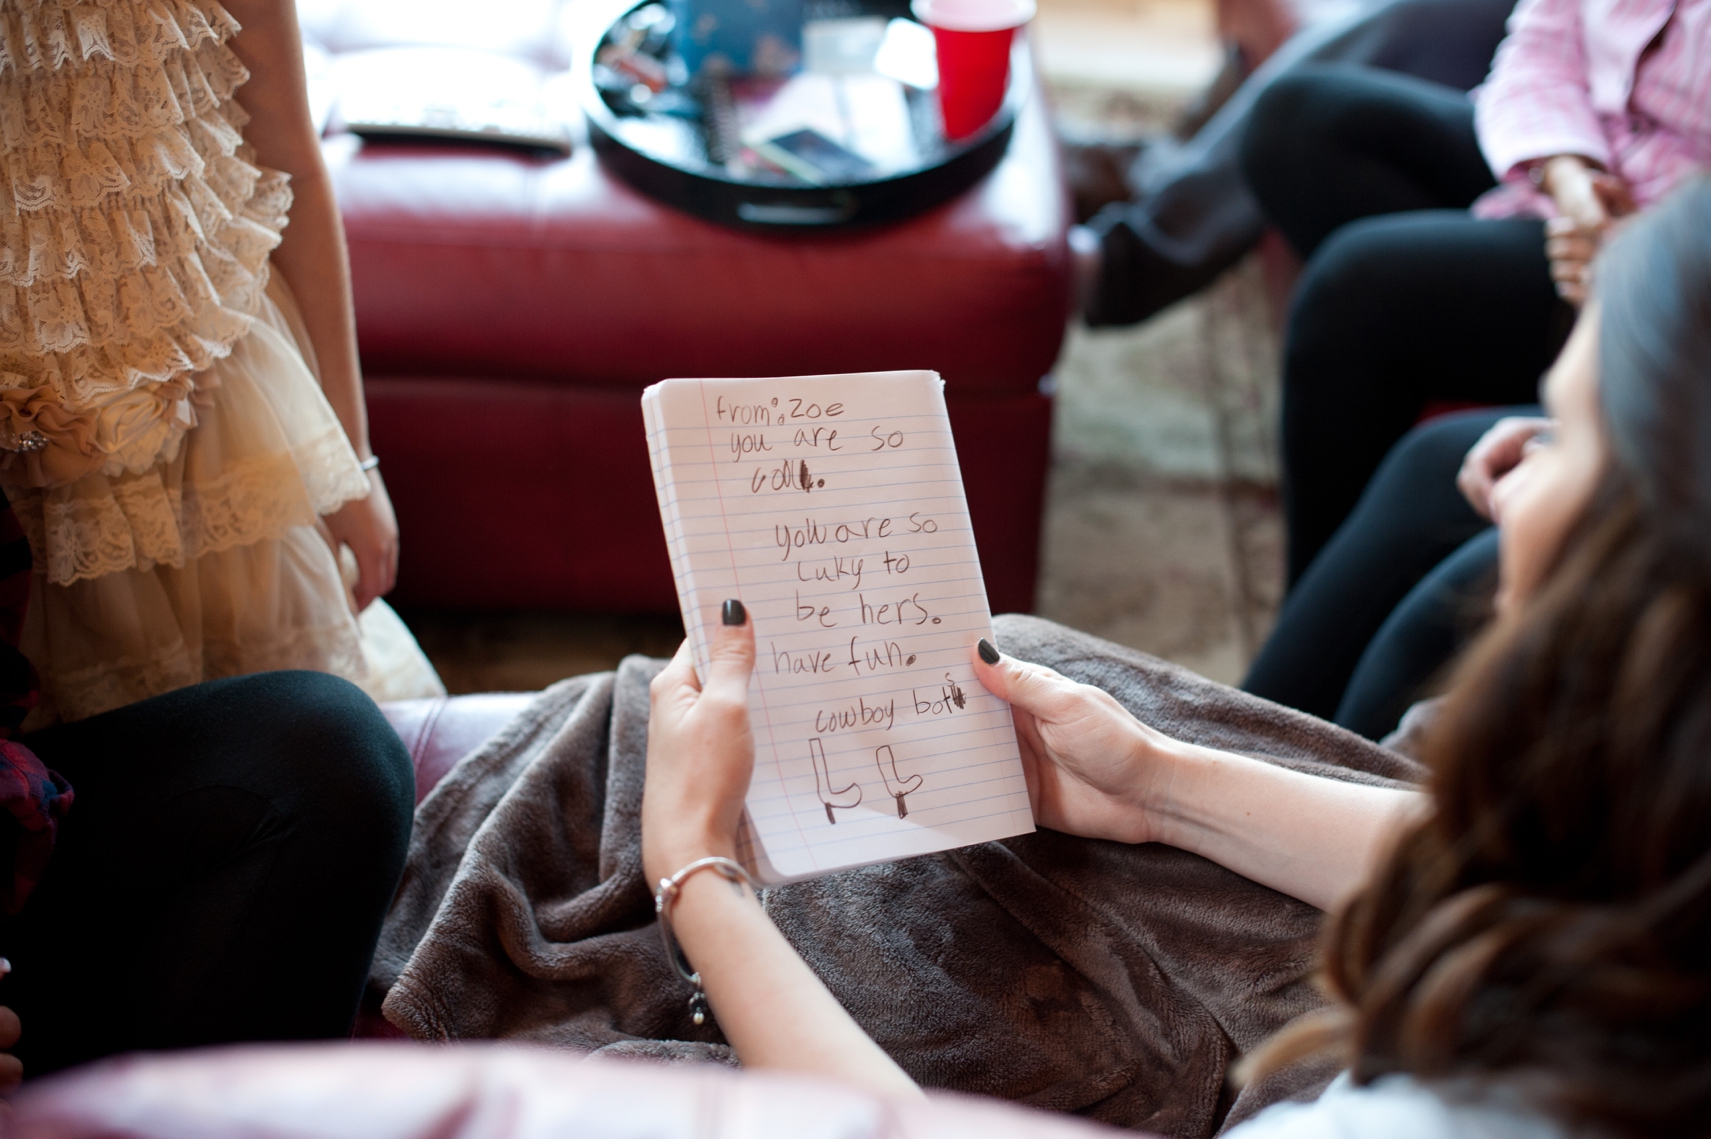 from: Zoe
you are so
coll.
you are so
Luky to
be hers.
have fun.
cowboy bots